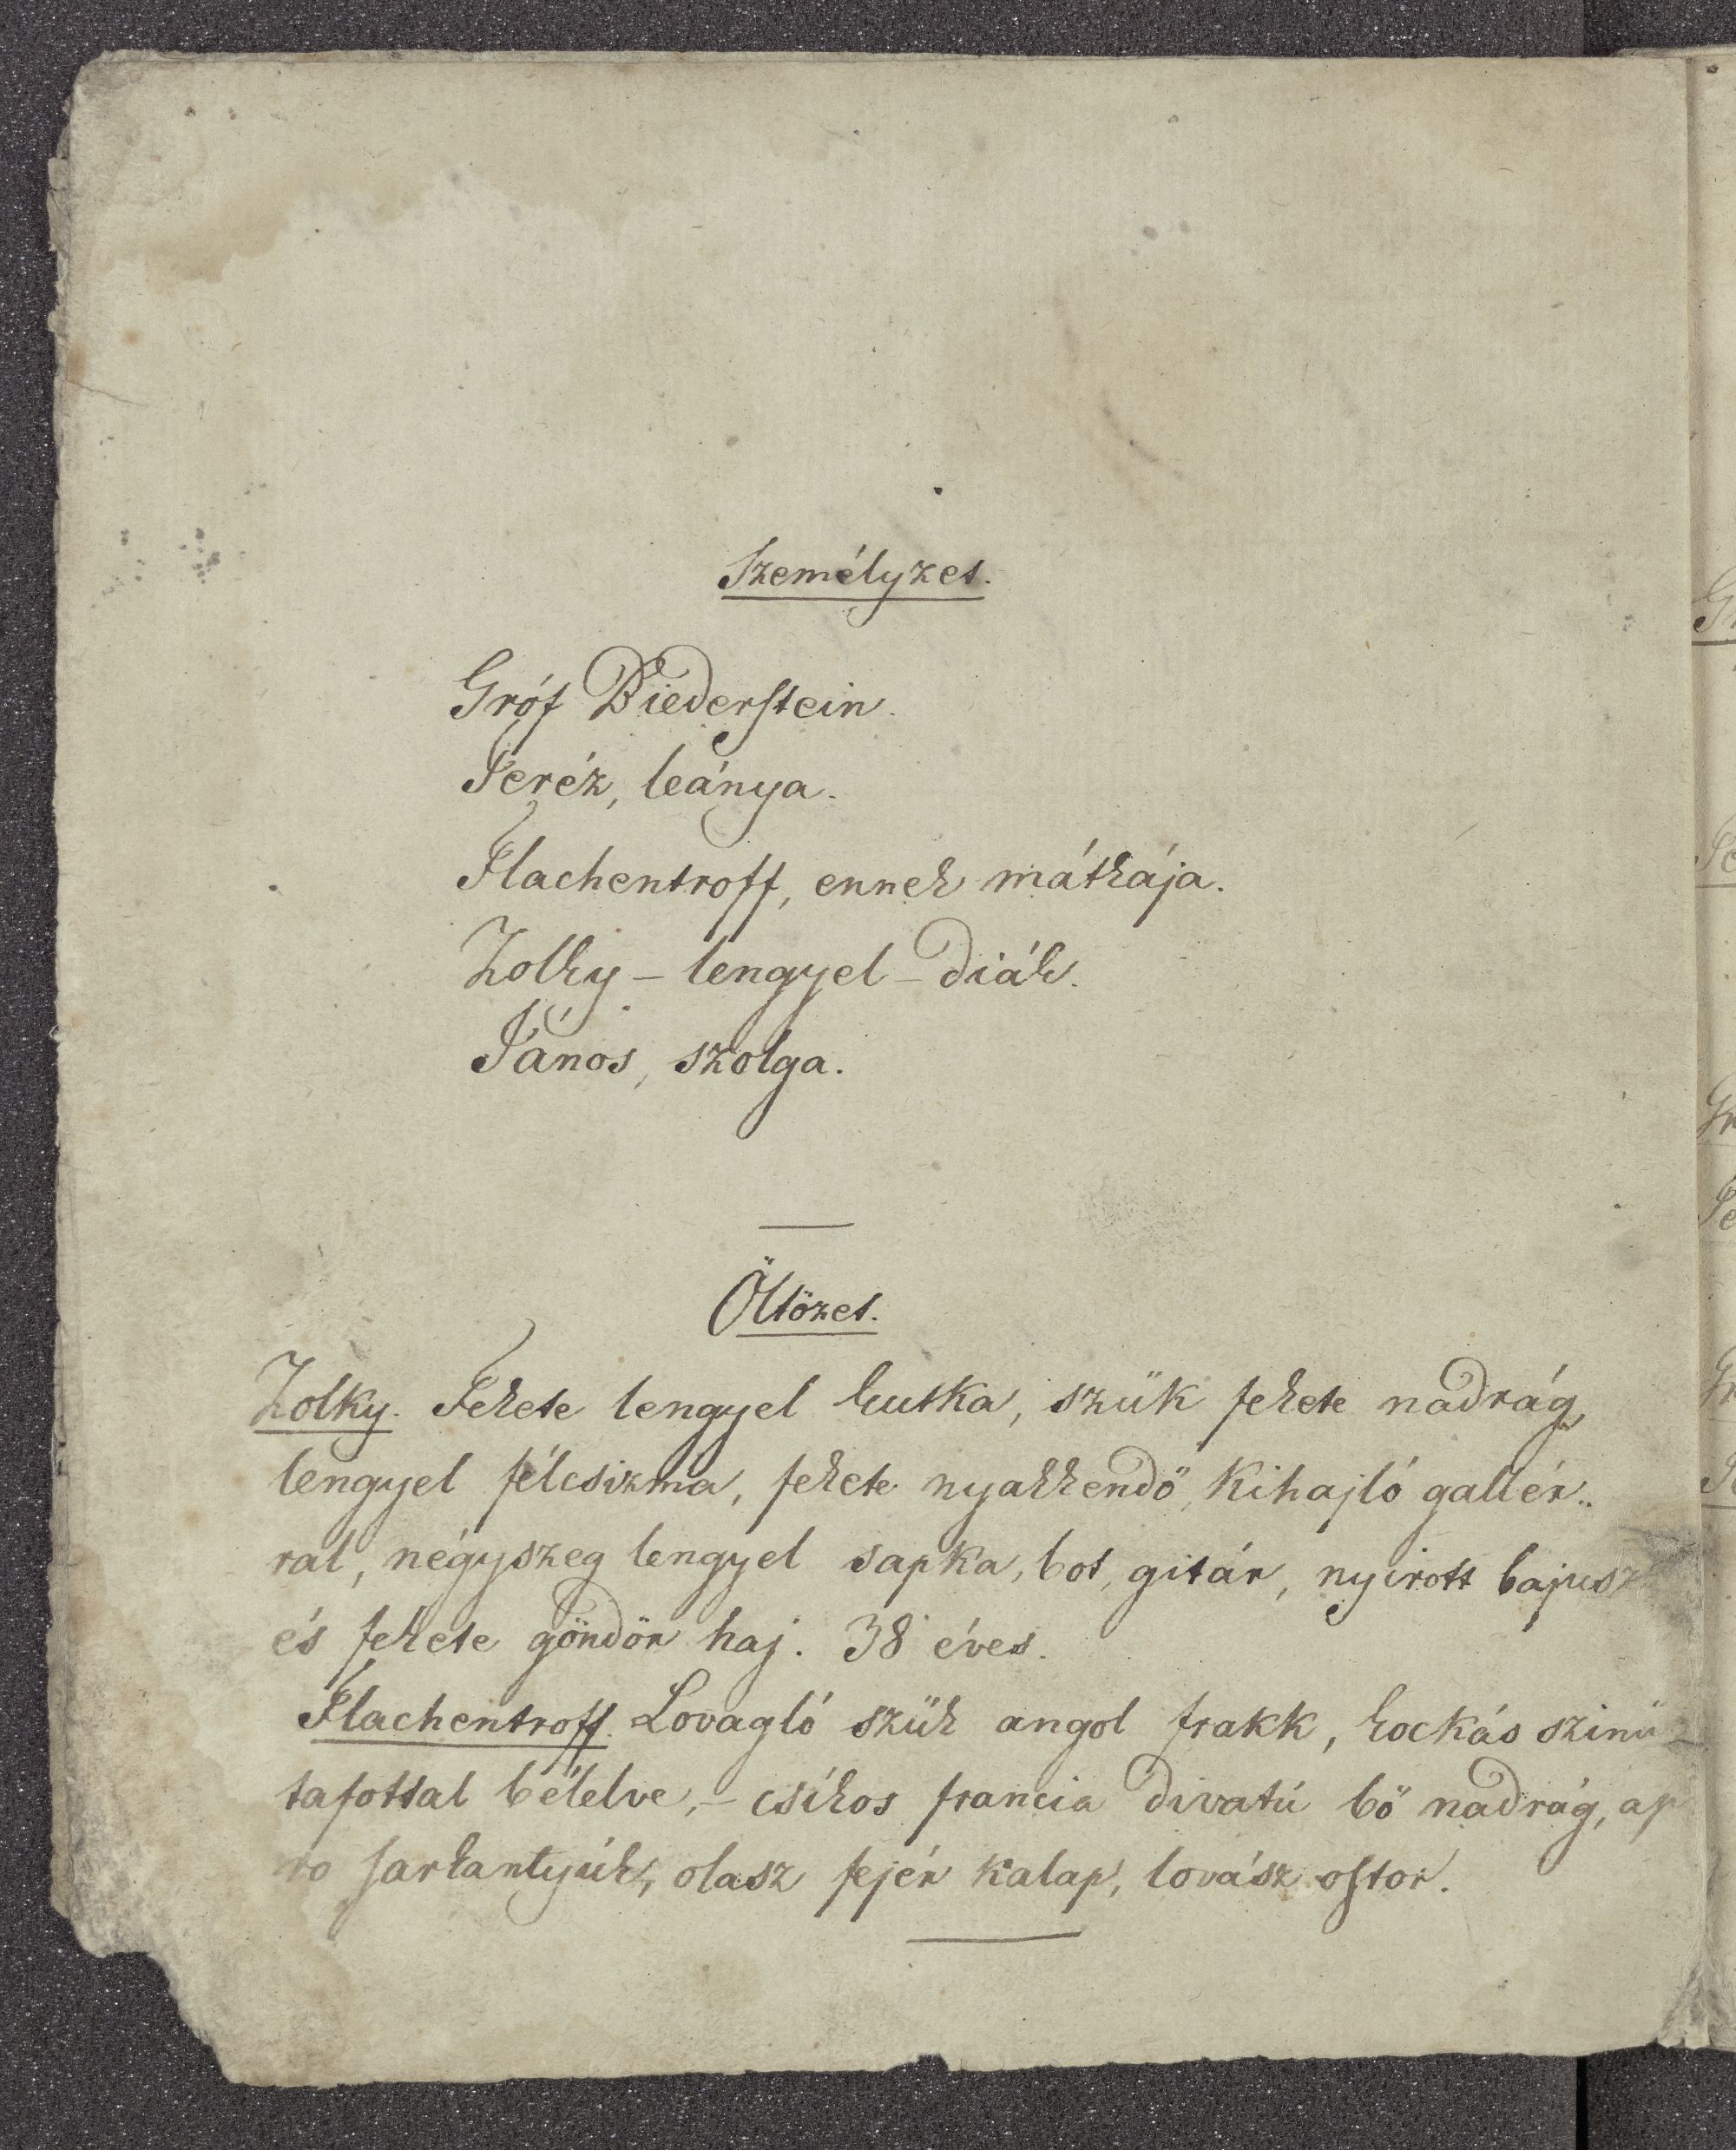 Személyzet.
Gróf Biederstein.
Teréz, leánya.
Flachentroff, ennek mátkája.
Zolky – lengyel – diák.
János, szolga.
Öltözet.
Zolky. Fekete lengyel kutka, szük fekete nadrág,
lengyel félcsizma, fekete nyakkendö, kihajló gallér..
ral, négyszeg lengyel sapka, bot, gitár, nyirott bajusz
és fekete göndör haj. 38 éves.
Flachentroff. Lovagló szük angol frakk, kockás szinü
tafottal bélelve, – csíkos francia divatú bö nadrág, ap
ro sarkantyúk, olasz fejér kalap, lovász ostor.